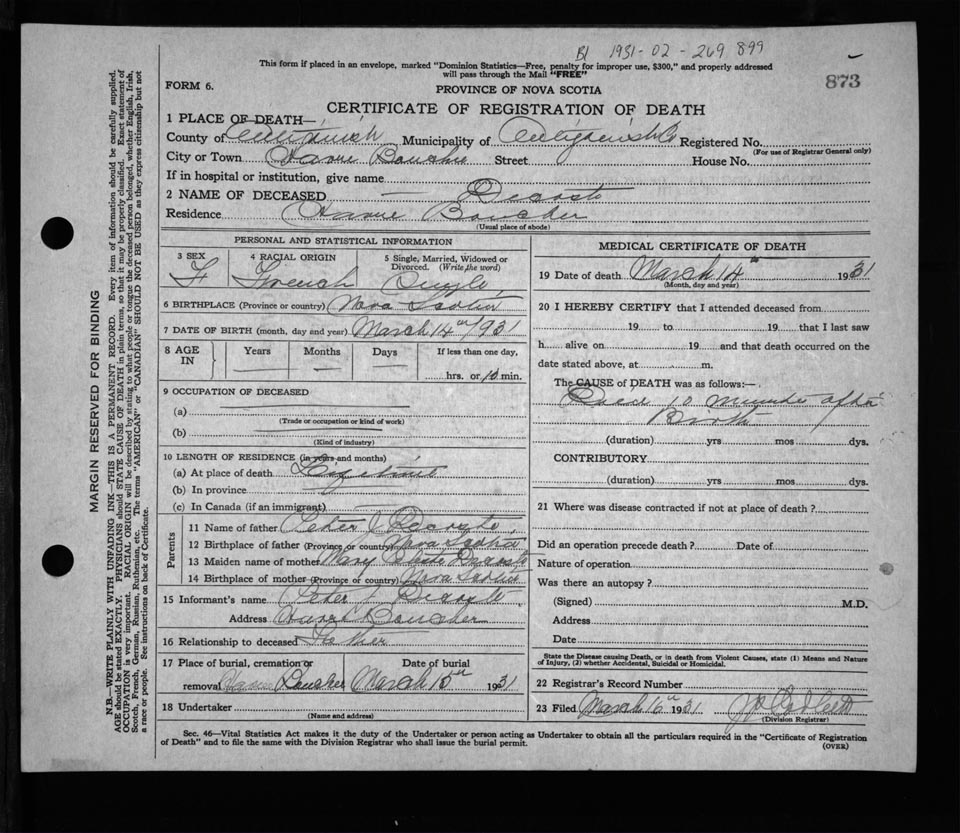 B1 1931-02-269 899
This form if placed in an envelope, marked "Dominion Statistics—Free, penalty for improper use, $300," and properly addressed
will pass through the Mail "FREE"
873
FORM 6.
PROVINCE OF NOVA SCOTIA
CERTIFICATE OF REGISTRATION OF DEATH
1 PLACE OF DEATH—
County of Antigonish Municipality of Antigonish Co Registered No.
(For use of Registrar General only)
City or Town Havre Boucher Street House No.
If in hospital or institution, give name
2 NAME OF DECEASED — Decoste
Residence Havre Boucher
(Usual place of abode)
PERSONAL AND STATISTICAL INFORMATION
3 SEX 4 RACIAL ORIGIN 5 Single, Married, Widowed or
Divorced. (Write the word)
F French Single
6 BIRTHPLACE (Province or country) Nova Scotia
7 DATE OF BIRTH (month, day and year) March 14th 1931
8 AGE IN Years Months Days If less than one day,
— — — hrs. or 10 min.
9 OCCUPATION OF DECEASED
(a)
(Trade or occupation or kind of work)
(b)
(Kind of industry)
10 LENGTH OF RESIDENCE (in years and months)
(a) At place of death Lifetime
(b) In province "
(c) In Canada (if an immigrant) —
Parents
11 Name of father Peter J Decoste
12 Birthplace of father (Province or country) Nova Scotia
13 Maiden name of mother Mary Decoste
14 Birthplace of mother (Province or country) Nova Scotia
15 Informant's name Peter J Decoste
Address Havre Boucher
16 Relationship to deceased Father
17 Place of burial, cremation or Date of burial
removal Havre Boucher March 15th 1931
18 Undertaker
(Name and address)
MEDICAL CERTIFICATE OF DEATH
19 Date of death March 14th 1931
(Month, day and year)
20 I HEREBY CERTIFY that I attended deceased from
19 to 19 that I last saw
h alive on 19 and that death occurred on the
date stated above, at m.
The CAUSE of DEATH was as follows:—
10 minutes after
Birth
(duration) yrs mos dys.
CONTRIBUTORY
(duration) yrs mos dys.
21 Where was disease contracted if not at place of death?
Did an operation precede death? Date of
Nature of operation
Was there an autopsy?
(Signed) M.D.
Address
Date
State the Disease causing Death, or in death from Violent Causes, state (1) Means and Nature
of Injury, (2) whether Accidental, Suicidal or Homicidal.
22 Registrar's Record Number
23 Filed March 16th 1931
(Division Registrar)
Sec. 46—Vital Statistics Act makes it the duty of the Undertaker or person acting as Undertaker to obtain all the particulars required in the "Certificate of Registration
of Death" and to file the same with the Division Registrar who shall issue the burial permit.
(OVER)
MARGIN RESERVED FOR BINDING
N.B.—WRITE PLAINLY WITH UNFADING INK—THIS IS A PERMANENT RECORD. Every item of information should be carefully supplied.
AGE should be stated EXACTLY. PHYSICIANS should STATE CAUSE OF DEATH in plain terms, so that it may be properly classified. Exact statement of
OCCUPATION is very important. RACIAL ORIGIN will be described by stating to what people or tongue the deceased person belonged, whether English, Irish,
Scotch, French, German, Russian, Ruthenian, etc. The terms "AMERICAN" or "CANADIAN" SHOULD NOT BE USED as they express citizenship but not
a race or people. See instructions on back of Certificate.